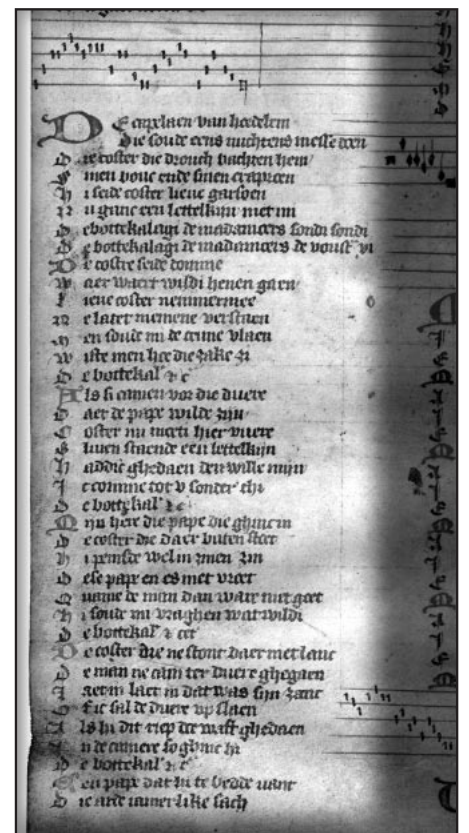 De capelaen van hoedelem
Die soude eens nuchtens messe doen
Die coster die drouch bachten hem
Sinen bouc ende sinen caproen
Hi seide coster lieue garsoen
Nu ganc een lettelkijn met mi
De bottekalagi de madameers sondi sondi
De bottekalagi de madameers de vousi vi
De costre seide domine
Waer waert wildi henen gaen
Lieue coster nemmermee
Ne latet niemene verstaen
Men soude mi de crune vlaen
Wiste men hoe die zake zi
De bottekal &c
Als si camen vor die duere
Daer de pape wilde zijn
Coster nu moeti hier vuere
Bliuen staende een lettelkijn
Haddic ghedaen den wille mijn
Ic comme tot v sonder chi
De bottekal &c
Mijn here die pape die ghinc in
De coster die daer buten stoet
Hi peinsde wel in zinen zin
Dese pape en es niet vroet
Quame de man dan waer niet goet
Hi soude mi vraghen wat wildi
De bottekal &c
De coster die ne stont daer niet lanc
De man ne cam ter duere ghegaen
Laet in laet in dat was sijn zanc
Of ic sal de duere vp slaen
Als hi dit riep doe wast ghedaen
In de camere so ghinc hi
De bottekal &c
Een pape dat hi te bedde vant
Die arde iamerlike sach